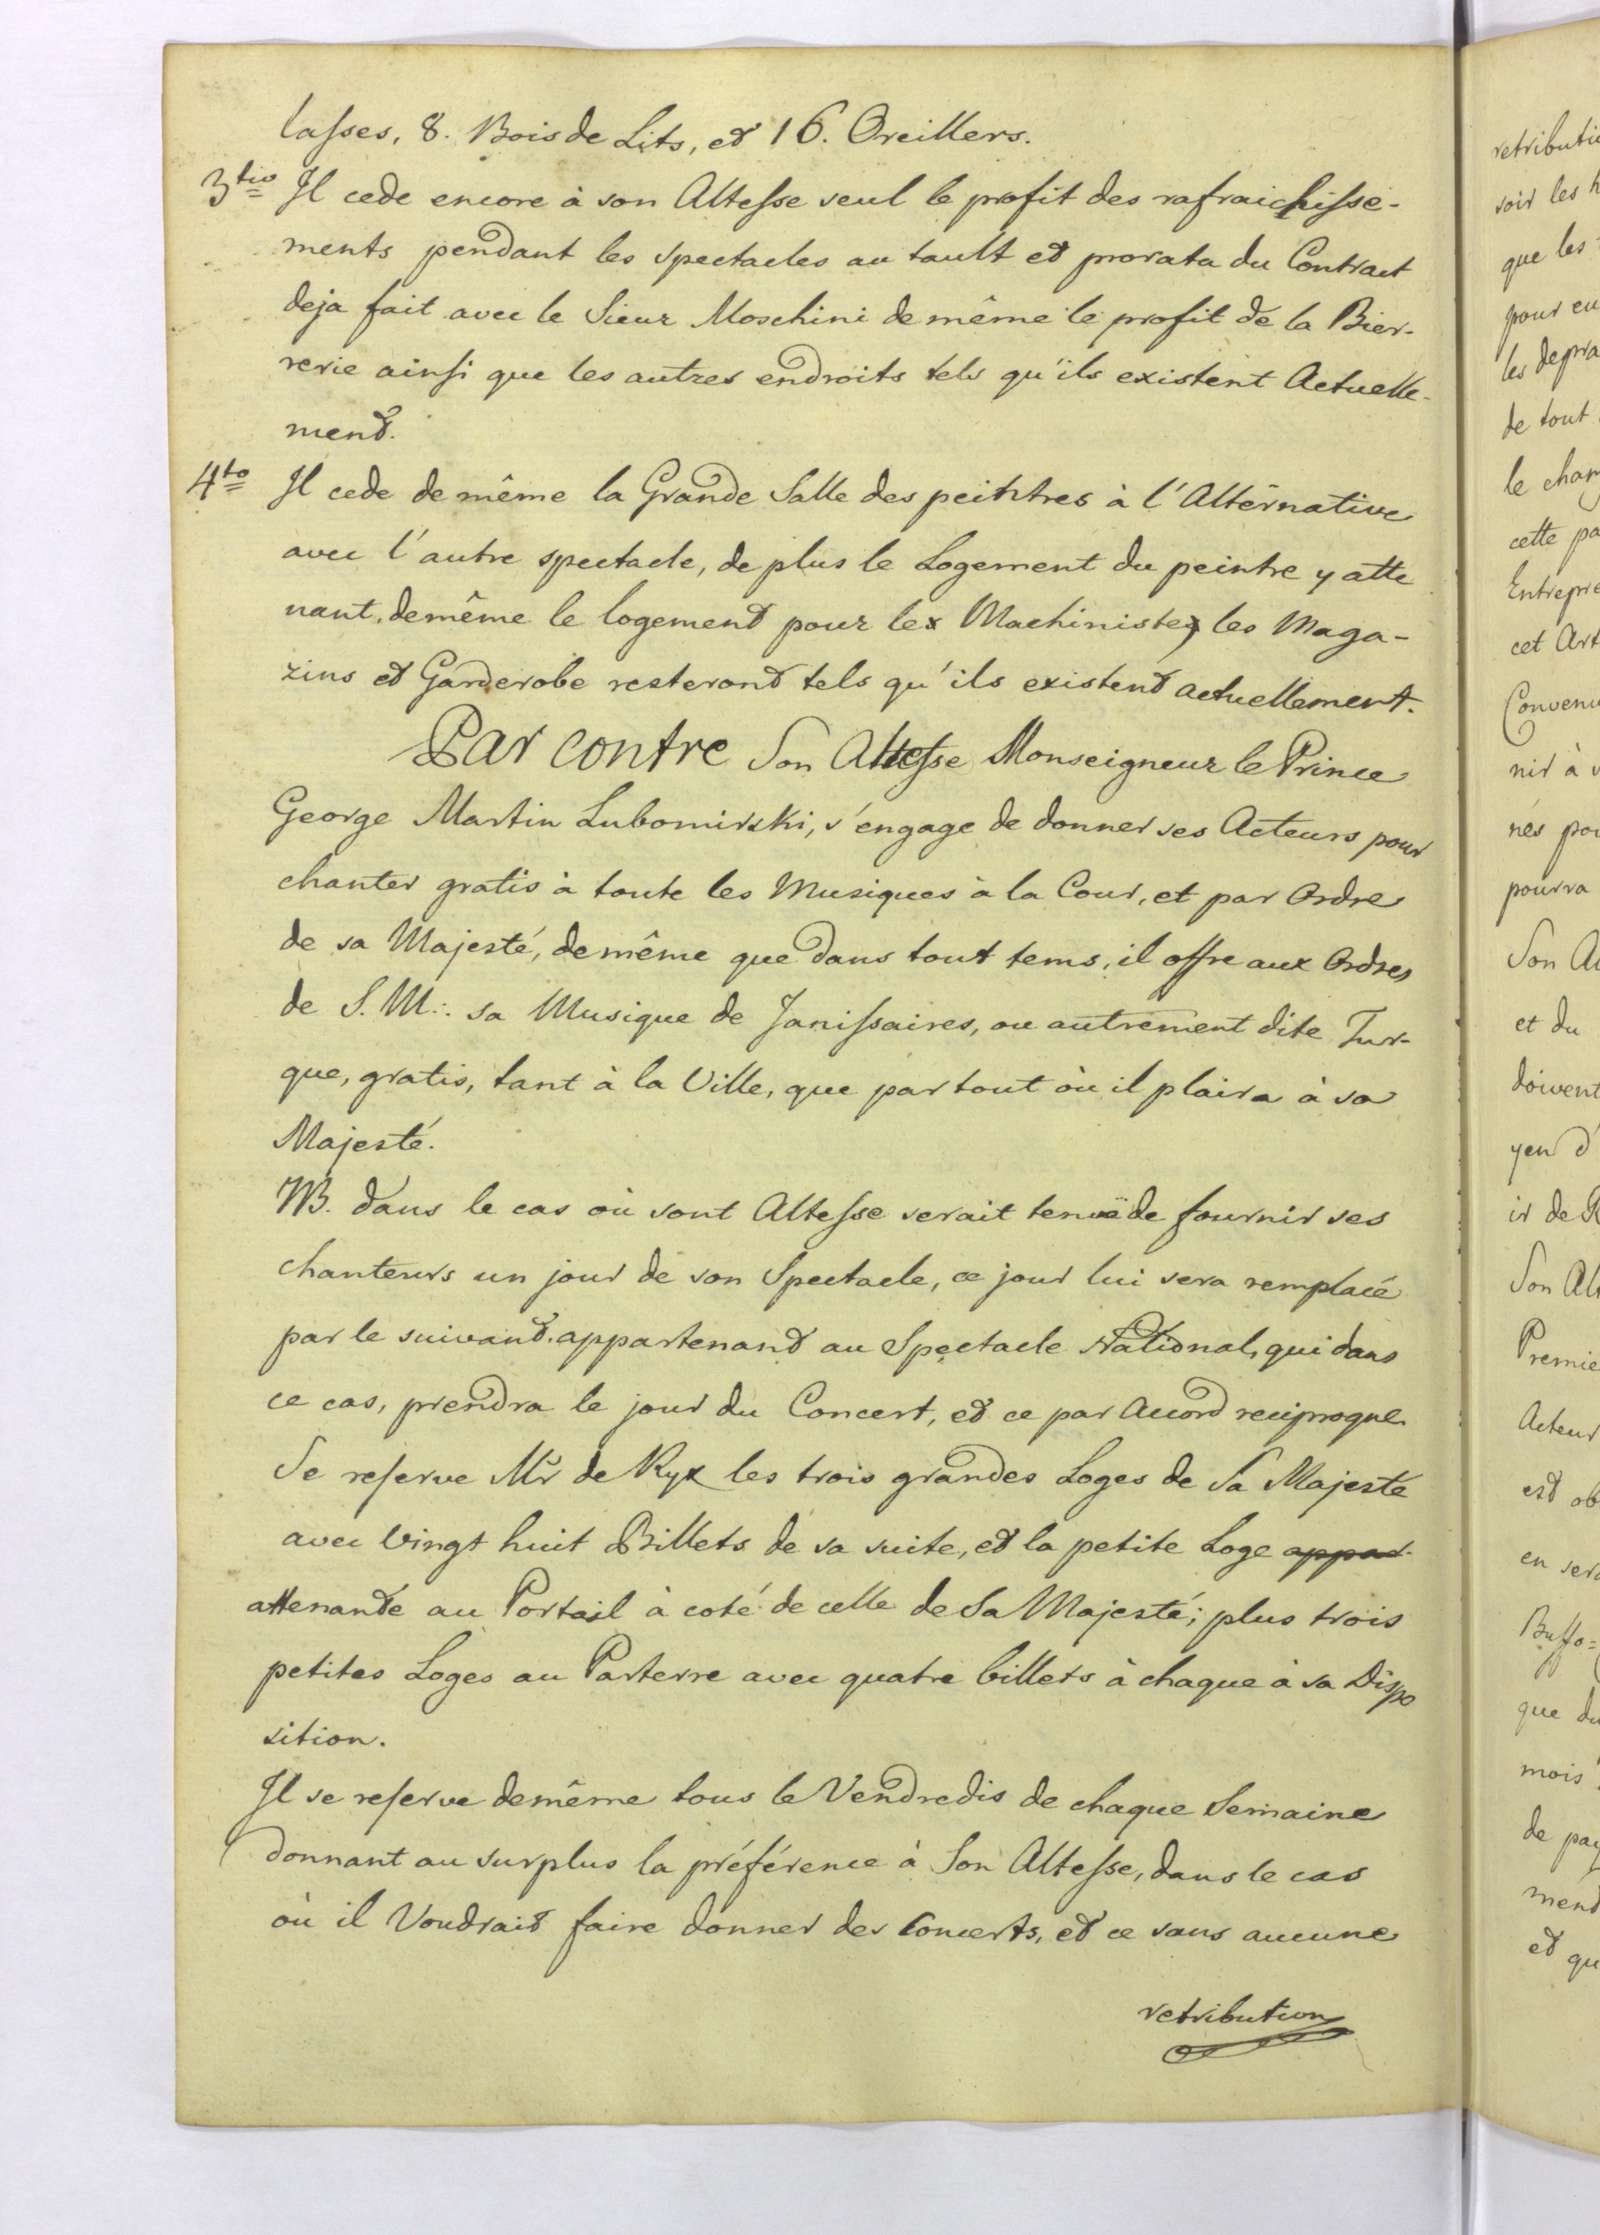 lasses, 8. Bois de Lits, et 16. Oreillers.
3tio Il cede encore à son Altesse seul le profit des rafraichisse-
ments pendant les spectacles au tault et prorata du Contract
deja fait avec le Sieur Moschini de même le profit de la Bier-
rerie ainsi que les autres endroits tels qu'ils existent Actuelle-
ment.
4to Il cede de même la Grande Salle des peintres à l'Alternative
avec l'autre spectacle, de plus le Logement du peintre y atte
nant, de même le logement pour les Machinistes, les Maga-
zins et Garderobe resteront tels qu'ils existent actuellement.
Par contre Son Altesse Monseigneur le Prince
George Martin Lubomirski, s'engage de donner ses Acteurs pour
chanter gratis à toute les Musiques à la Cour, et par Ordre
de sa Majesté, de même que dans tout tems, il offre aux Ordres
de S. M.: sa Musique de Janissaires, ou autrement dite Tur-
que, gratis, tant à la Ville, que partout où il plaira à sa
Majesté.
NB. dans le cas où sont Altesse serait tenuë de fournir ses
chanteurs un jour de son Spectacle, ce jour lui sera remplacé
par le suivant. appartenant au Spectacle National, qui dans
ce cas, prendra le jour du Concert, et ce par Accord reciproque
Se reserve Mr de Ryx les trois grandes Loges de Sa Majesté
avec Vingt huit Billets de sa suite, et la petite Loge appar-
attenante au Portail à coté de celle de Sa Majesté; plus trois
petites Loges au Parterre avec quatre billets à chaque à sa Dispo
sition.
Il se reserve de même tous le Vendredis de chaque Semaine
donnant au surplus la préférence à Son Altesse, dans le cas
où il Voudrait faire donner des Concerts, et ce sans aucune
retribution
retributio
soir les h
que les
pour en
les depra
de tout
le char
cette pa
Entrepre
cet Art
Convenu
nir à
nés pou
pourra
Son A
et du
doivent
yen d'
ir de R
Son Al
Premie
Acteur
est ob
en sera
Buffo=
que du
mois
de pay
ment
et qu